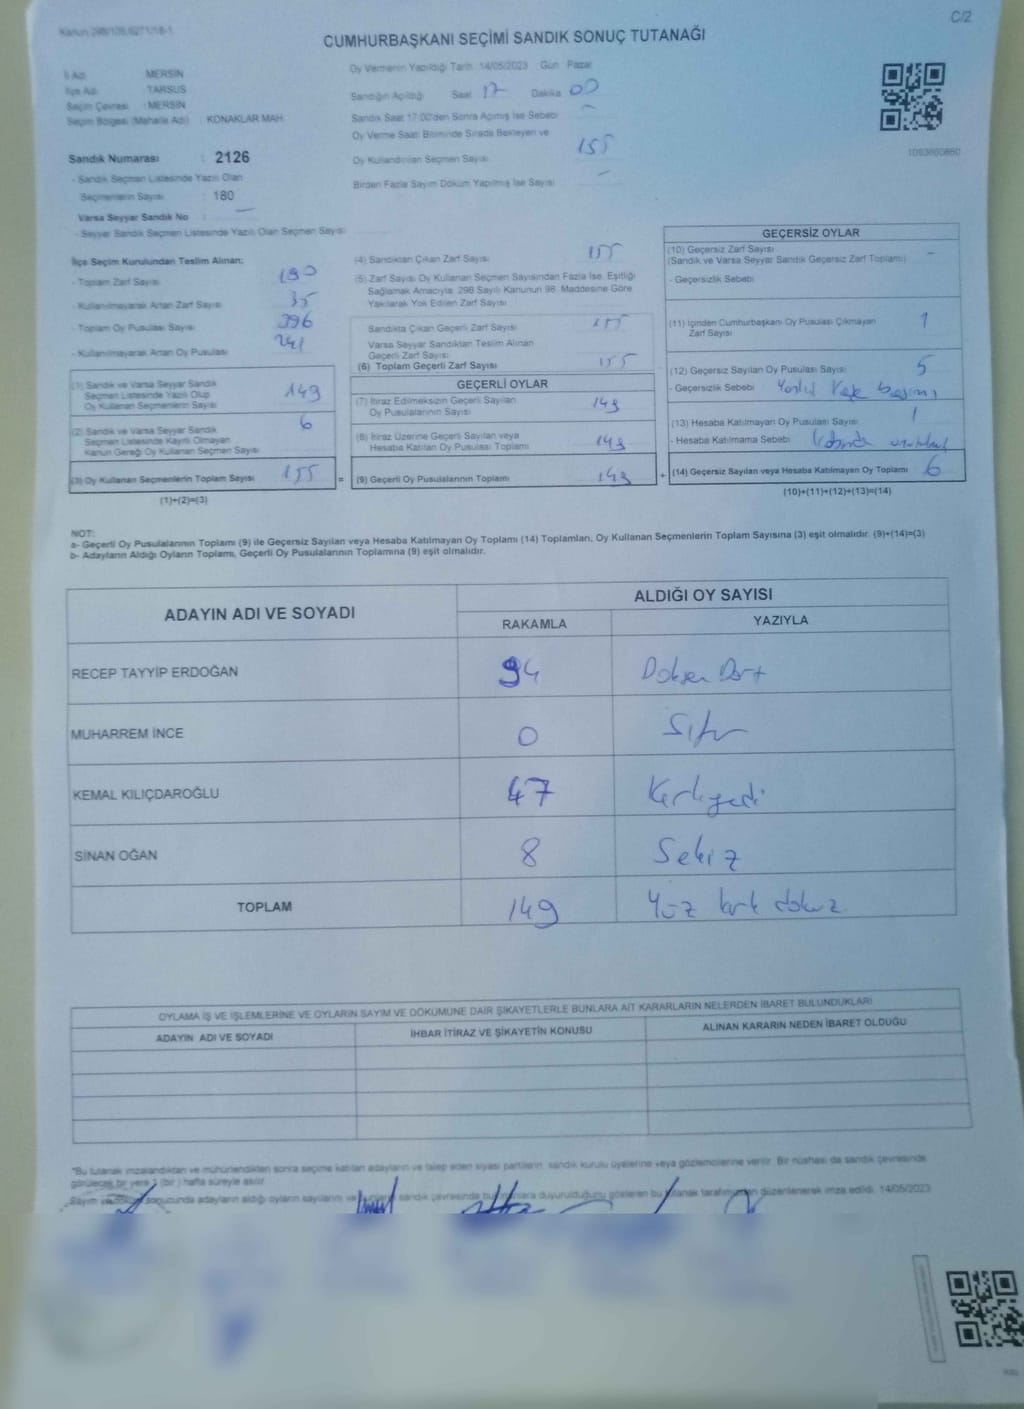 Kanun 298/105,6271/18-1
C/2
CUMHURBAŞKANI SEÇİMİ SANDIK SONUÇ TUTANAĞI
İl Adı : MERSİN
İlçe Adı : TARSUS
Seçim Çevresi : MERSİN
Seçim Bölgesi (Mahalle Adı) : KONAKLAR MAH.
Sandık Numarası : 2126
- Sandık Seçmen Listesinde Yazılı Olan
Seçmenlerin Sayısı : 180
Varsa Seyyar Sandık No : —
- Seyyar Sandık Seçmen Listesinde Yazılı Olan Seçmen Sayısı
Oy Vermenin Yapıldığı Tarih :14/05/2023 Gün : Pazar
Sandığın Açıldığı Saat 17 Dakika 00
Sandık Saat 17:00'den Sonra Açılmış İse Sebebi –
Oy Verme Saati Bitiminde Sırada Bekleyen ve
Oy Kullandırılan Seçmen Sayısı 155
Birden Fazla Sayım Döküm Yapılmış İse Sayısı –
1093660860
İlçe Seçim Kurulundan Teslim Alınan:
- Toplam Zarf Sayısı 190
- Kullanılmayarak Artan Zarf Sayısı 35
- Toplam Oy Pusulası Sayısı 396
- Kullanılmayarak Artan Oy Pusulası 241
(1) Sandık ve Varsa Seyyar Sandık
Seçmen Listesinde Yazılı Olup
Oy Kullanan Seçmenlerin Sayısı 149
(2) Sandık ve Varsa Seyyar Sandık
Seçmen Listesinde Kayıtlı Olmayan
Kanun Gereği Oy Kullanan Seçmen Sayısı 6
(3) Oy Kullanan Seçmenlerin Toplam Sayısı 155
(1)+(2)=(3)
(4) Sandıktan Çıkan Zarf Sayısı 155
(5) Zarf Sayısı Oy Kullanan Seçmen Sayısından Fazla İse, Eşitliği
Sağlamak Amacıyla, 298 Sayılı Kanunun 98. Maddesine Göre
Yakılarak Yok Edilen Zarf Sayısı
Sandıkta Çıkan Geçerli Zarf Sayısı 155
Varsa Seyyar Sandıktan Teslim Alınan
Geçerli Zarf Sayısı
(6) Toplam Geçerli Zarf Sayısı 155
GEÇERLİ OYLAR
(7) İtiraz Edilmeksizin Geçerli Sayılan
Oy Pusulalarının Sayısı 149
(8) İtiraz Üzerine Geçerli Sayılan veya
Hesaba Katılan Oy Pusulası Toplamı 149
= (9) Geçerli Oy Pusulalarının Toplamı 149 +
GEÇERSİZ OYLAR
(10) Geçersiz Zarf Sayısı –
(Sandık ve Varsa Seyyar Sandık Geçersiz Zarf Toplamı)
- Geçersizlik Sebebi
(11) İçinden Cumhurbaşkanı Oy Pusulası Çıkmayan
Zarf Sayısı 1
(12) Geçersiz Sayılan Oy Pusulası Sayısı 5
- Geçersizlik Sebebi
(13) Hesaba Katılmayan Oy Pusulası Sayısı 1
- Hesaba Katılmama Sebebi
(14) Geçersiz Sayılan veya Hesaba Katılmayan Oy Toplamı 6
(10)+(11)+(12)+(13)=(14)
NOT:
a- Geçerli Oy Pusulalarının Toplamı (9) ile Geçersiz Sayılan veya Hesaba Katılmayan Oy Toplamı (14) Toplamları, Oy Kullanan Seçmenlerin Toplam Sayısına (3) eşit olmalıdır. (9)+(14)=(3)
b- Adayların Aldığı Oyların Toplamı, Geçerli Oy Pusulalarının Toplamına (9) eşit olmalıdır.
ADAYIN ADI VE SOYADI
ALDIĞI OY SAYISI
RAKAMLA YAZIYLA
RECEP TAYYİP ERDOĞAN 94 Doksan Dört
MUHARREM İNCE 0 Sıfır
KEMAL KILIÇDAROĞLU 47 Kırkyedi
SİNAN OĞAN 8 Sekiz
TOPLAM 149 Yüz kırk dokuz
OYLAMA İŞ VE İŞLEMLERİNE VE OYLARIN SAYIM VE DÖKÜMÜNE DAİR ŞİKAYETLERLE BUNLARA AİT KARARLARIN NELERDEN İBARET BULUNDUKLARI
ADAYIN ADI VE SOYADI İHBAR İTİRAZ VE ŞİKAYETİN KONUSU ALINAN KARARIN NEDEN İBARET OLDUĞU
"Bu tutanak imzalandıktan ve mühürlendikten sonra seçime katılan adayların ve talep eden siyasi partilerin, sandık kurulu üyelerine veya gözlemcilerine verilir. Bir nüshası da sandık çevresinde
görülecek bir yere 1 (bir) hafta süreyle asılır.
Sayım ve döküm sonucunda adayların aldığı oyların sayılarını ve sandık çevresinde duyurulduğunu gösteren bu tutanak tarafımızdan düzenlenerek imza edildi. 14/05/2023